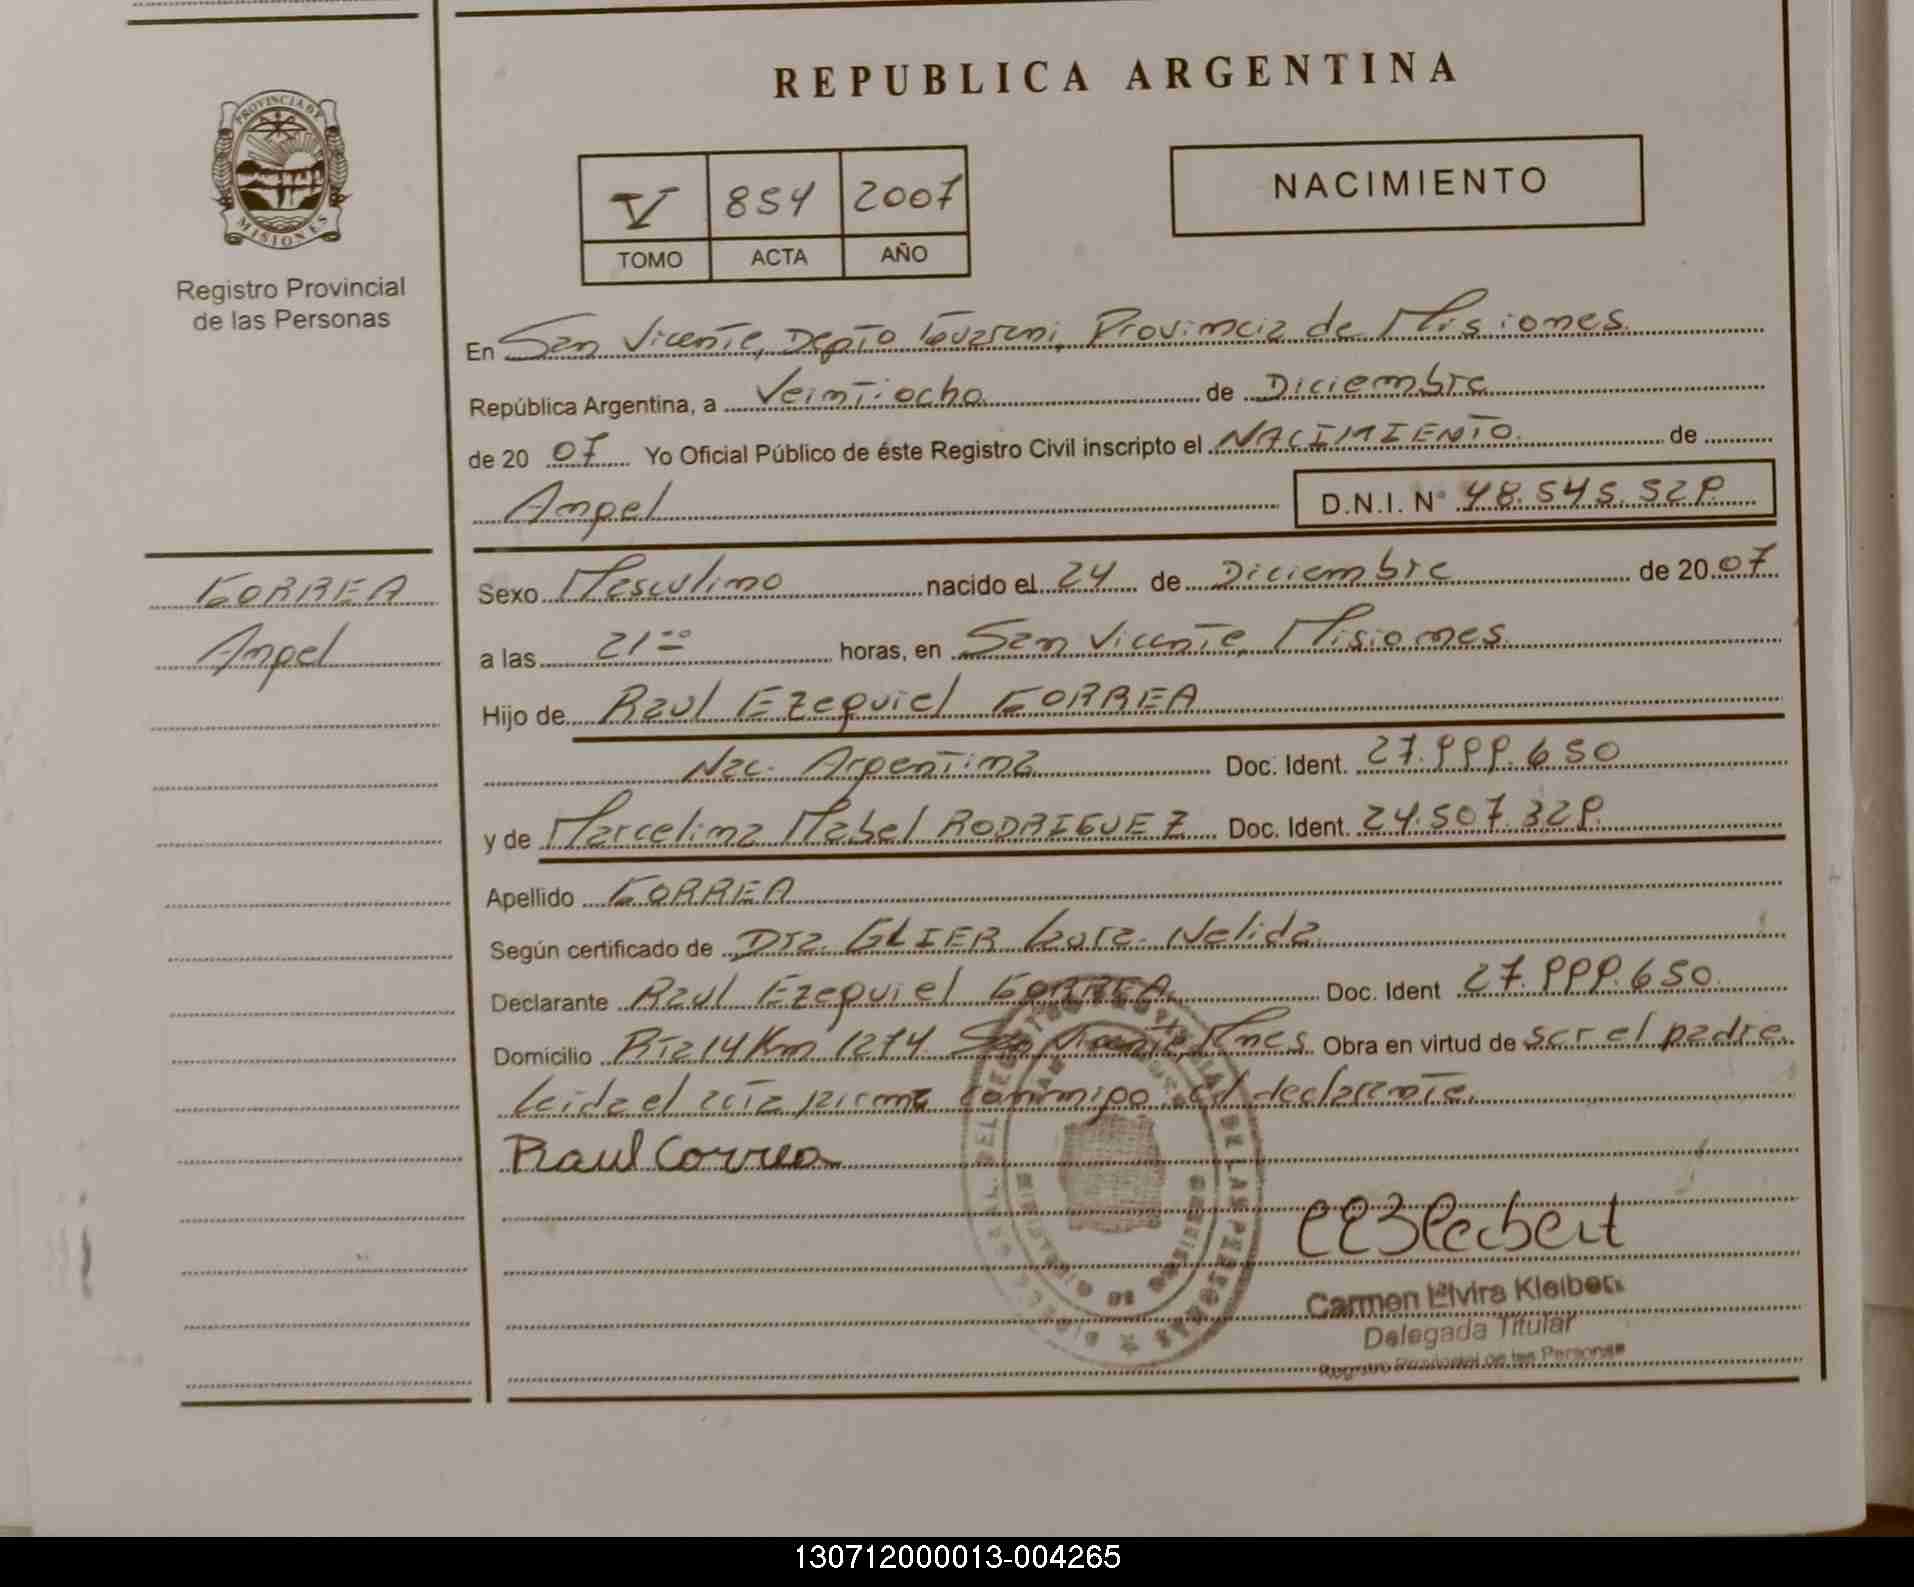 REPUBLICA ARGENTINA
PROVINCIA DE
MISIONES
Registro Provincial
de las Personas
V 854 2007
TOMO ACTA AÑO
NACIMIENTO
En San Vicente, Depto Guarani, Provincia de Misiones
República Argentina, a Veintiocho de Diciembre
de 20 07 Yo Oficial Público de éste Registro Civil inscripto el NACIMIENTO de
Angel D.N.I. Nº 48.545.529
CORREA
Angel
Sexo Masculino nacido el 24 de Diciembre de 20 07
a las 21 00 horas, en San Vicente, Misiones
Hijo de Raul Ezequiel CORREA
Nac. Argentina Doc. Ident. 27.999.650
y de Marcelina Mabel RODRIGUEZ Doc. Ident. 24.507.329
Apellido CORREA
Según certificado de Dra. GLIER Nelida
Declarante Raul Ezequiel CORREA Doc. Ident 27.999.650
Domicilio Rta 14 Km 1274 San Vicente, Mnes Obra en virtud de ser el padre
Leida el acta, firma conmigo: el declarante.
Raul Correa
Carmen Elvira Kleibert
Delegada Titular
Registro Provincial de las Personas
130712000013-004265